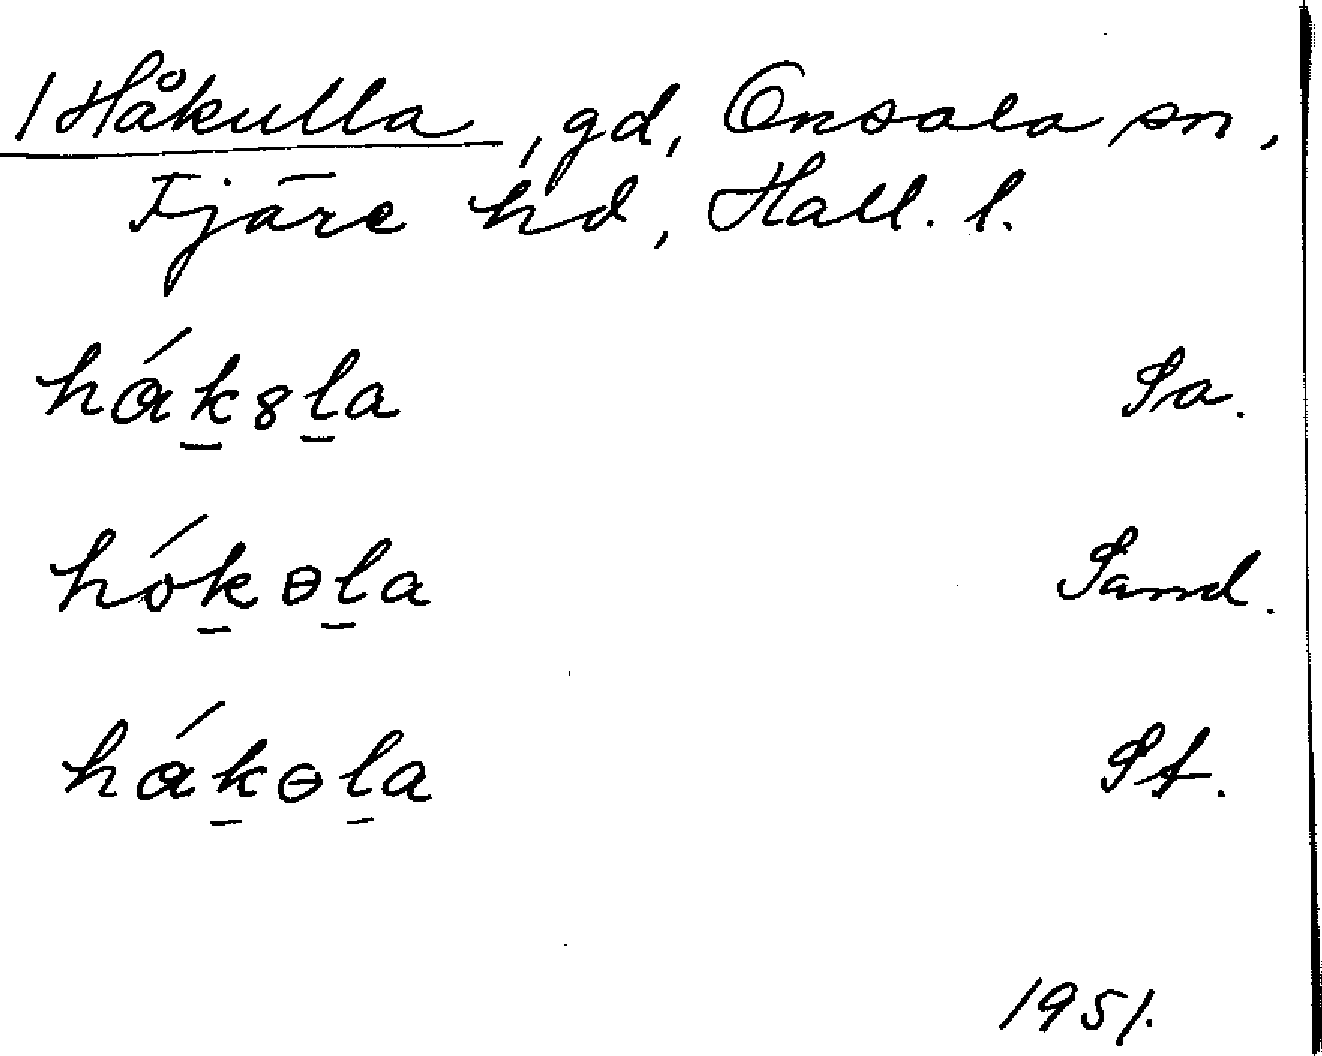 1 Håkulla, gd, Onsala sn,
Fjäre hd, Hall. l.
hɑ́k̠8l̠a Sa.
hók̠ɵl̠a Sand.
hɑ́k̠ɵl̠a St.
1951.